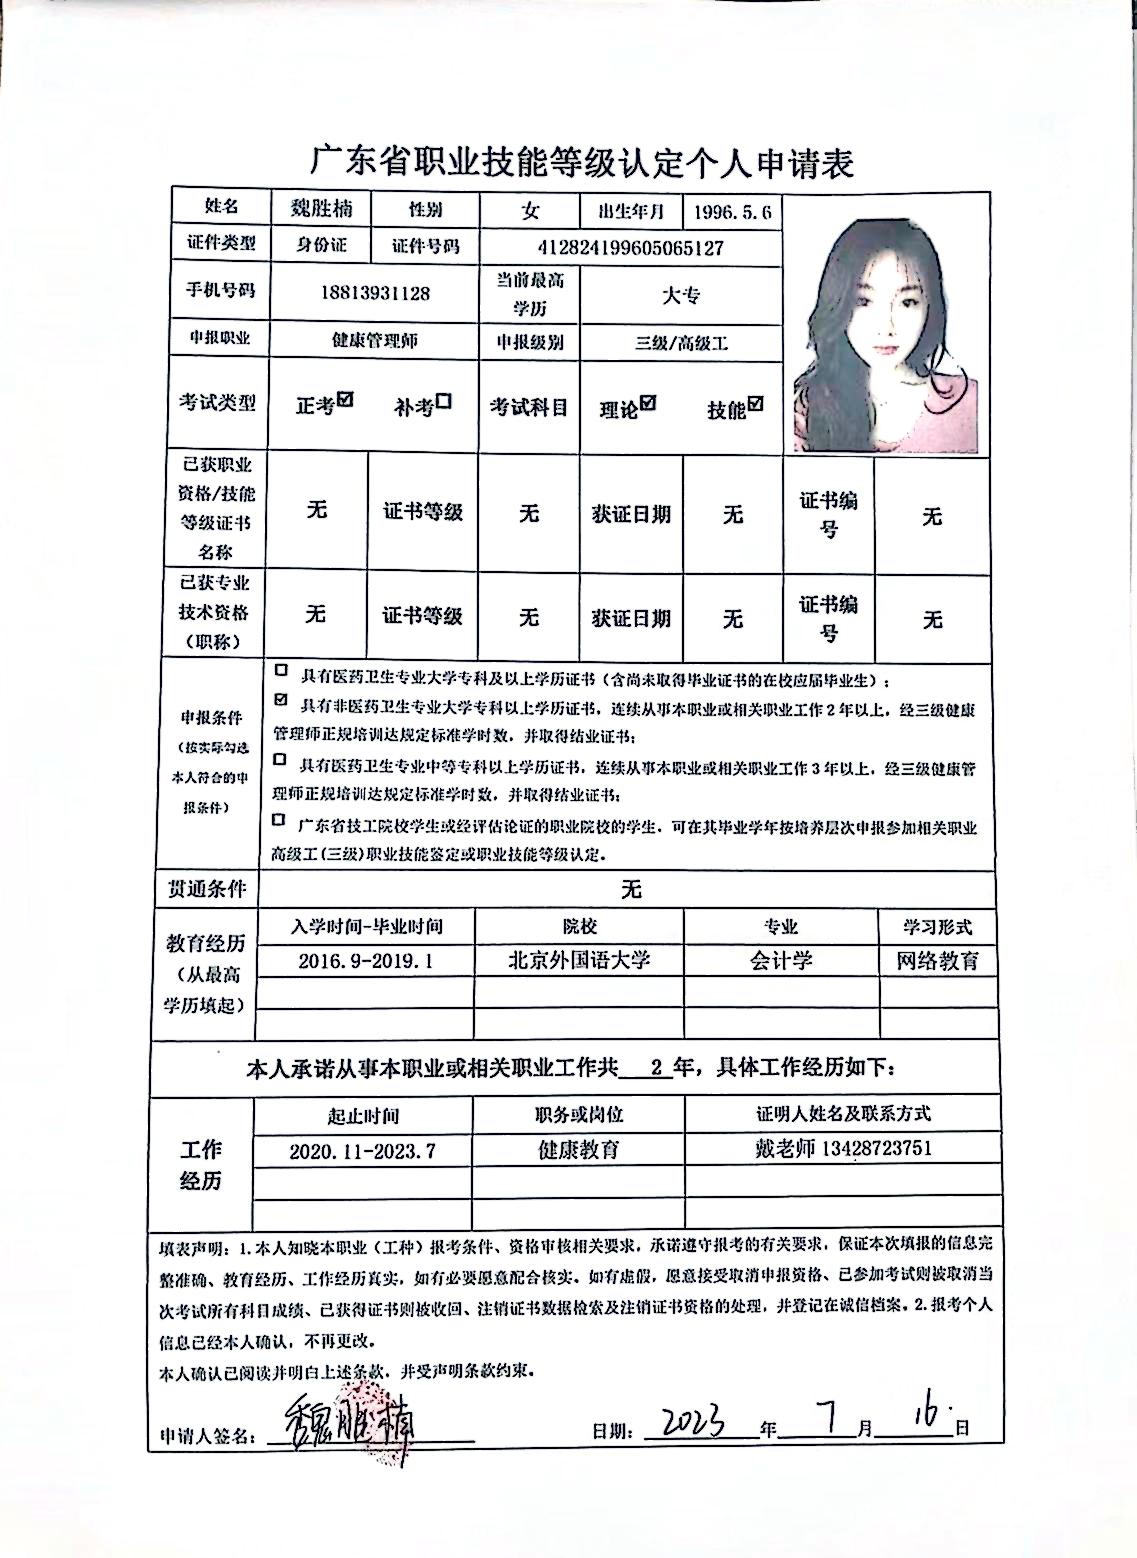 广东省职业技能等级认定个人申请表
姓名 魏胜楠 性别 女 出生年月 1996.5.6
证件类型 身份证 证件号码 412824199605065127
手机号码 18813931128 当前最高学历 大专
申报职业 健康管理师 申报级别 三级/高级工
考试类型 正考☑ 补考☐ 考试科目 理论☑ 技能☑
已获职业资格/技能等级证书名称 无 证书等级 无 获证日期 无 证书编号 无
已获专业技术资格（职称） 无 证书等级 无 获证日期 无 证书编号 无
申报条件（按实际勾选本人符合的申报条件）
☐ 具有医药卫生专业大学专科及以上学历证书（含尚未取得毕业证书的在校应届毕业生）；
☑ 具有非医药卫生专业大学专科以上学历证书，连续从事本职业或相关职业工作2年以上，经三级健康
管理师正规培训达规定标准学时数，并取得结业证书；
☐ 具有医药卫生专业中等专科以上学历证书，连续从事本职业或相关职业工作3年以上，经三级健康管
理师正规培训达规定标准学时数，并取得结业证书；
☐ 广东省技工院校学生或经评估论证的职业院校的学生，可在其毕业学年按培养层次申报参加相关职业
高级工(三级)职业技能鉴定或职业技能等级认定。
贯通条件 无
教育经历（从最高学历填起）
入学时间-毕业时间 院校 专业 学习形式
2016.9-2019.1 北京外国语大学 会计学 网络教育
本人承诺从事本职业或相关职业工作共 2 年，具体工作经历如下：
工作经历
起止时间 职务或岗位 证明人姓名及联系方式
2020.11-2023.7 健康教育 戴老师 13428723751
填表声明：1.本人知晓本职业（工种）报考条件、资格审核相关要求，承诺遵守报考的有关要求，保证本次填报的信息完
整准确、教育经历、工作经历真实，如有必要愿意配合核实。如有虚假，愿意接受取消申报资格、已参加考试则被取消当
次考试所有科目成绩、已获得证书则被收回、注销证书数据检索及注销证书资格的处理，并登记在诚信档案。2.报考个人
信息已经本人确认，不再更改。
本人确认已阅读并明白上述条款，并受声明条款约束。
申请人签名： 魏胜楠 日期： 2023 年 7 月 16 日